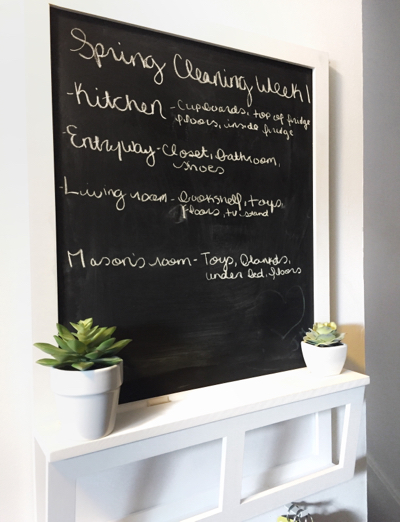 Spring Cleaning Week 1
-Kitchen -Cupboards, top of fridge
floors, inside fridge
-Entryway-Closet, bathroom,
shoes
-Living room- bookshelf, toys,
floors, tv stand
Mason's room- Toys, blankets,
under bed, floors